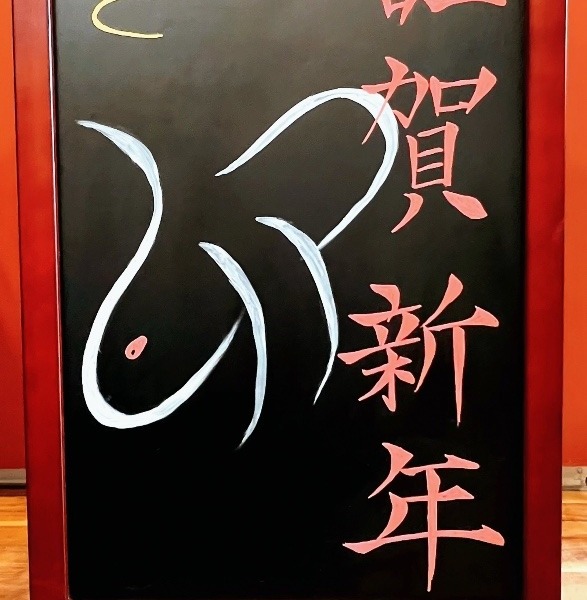 謹賀新年
卯